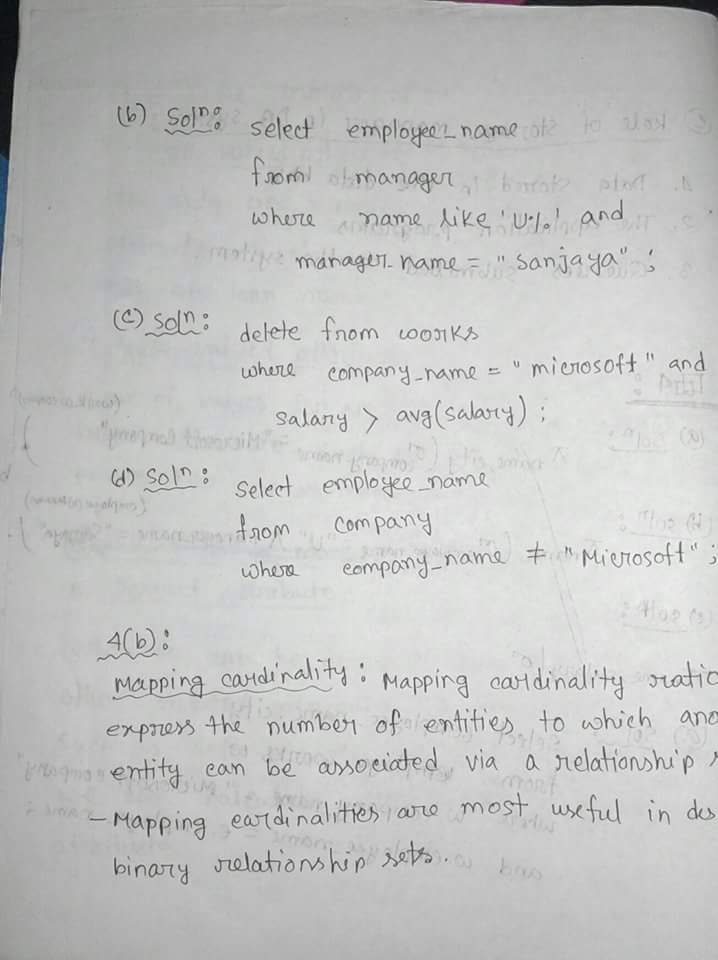 (b) Soln: select employee_name
from manager
where name like 'U%' and
manager_name = "Sanjaya" ;
(c) soln: delete from works
where company_name = "microsoft" and
salary > avg(salary) ;
(d) soln: select employee_name
from company
where company_name ≠ "Microsoft" ;
4(b):
Mapping cardinality: Mapping cardinality ratio
express the number of entities to which ano
entity can be associated via a relationship
- Mapping cardinalities are most useful in des
binary relationship sets.